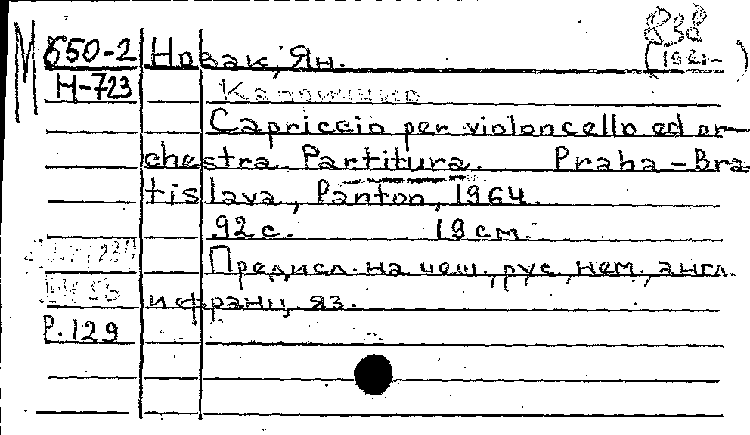 М 650-2 Новак, Ян. 838 (1921- )
Н-723 Каприччио
Capriccio per violoncello ed or-
chestra. Partitura. Praha – Bra
tislava, Panton, 1964.
92 с. 19 см.
Предисл. на чеш., рус., нем., англ.
и франц. яз.
Р.129